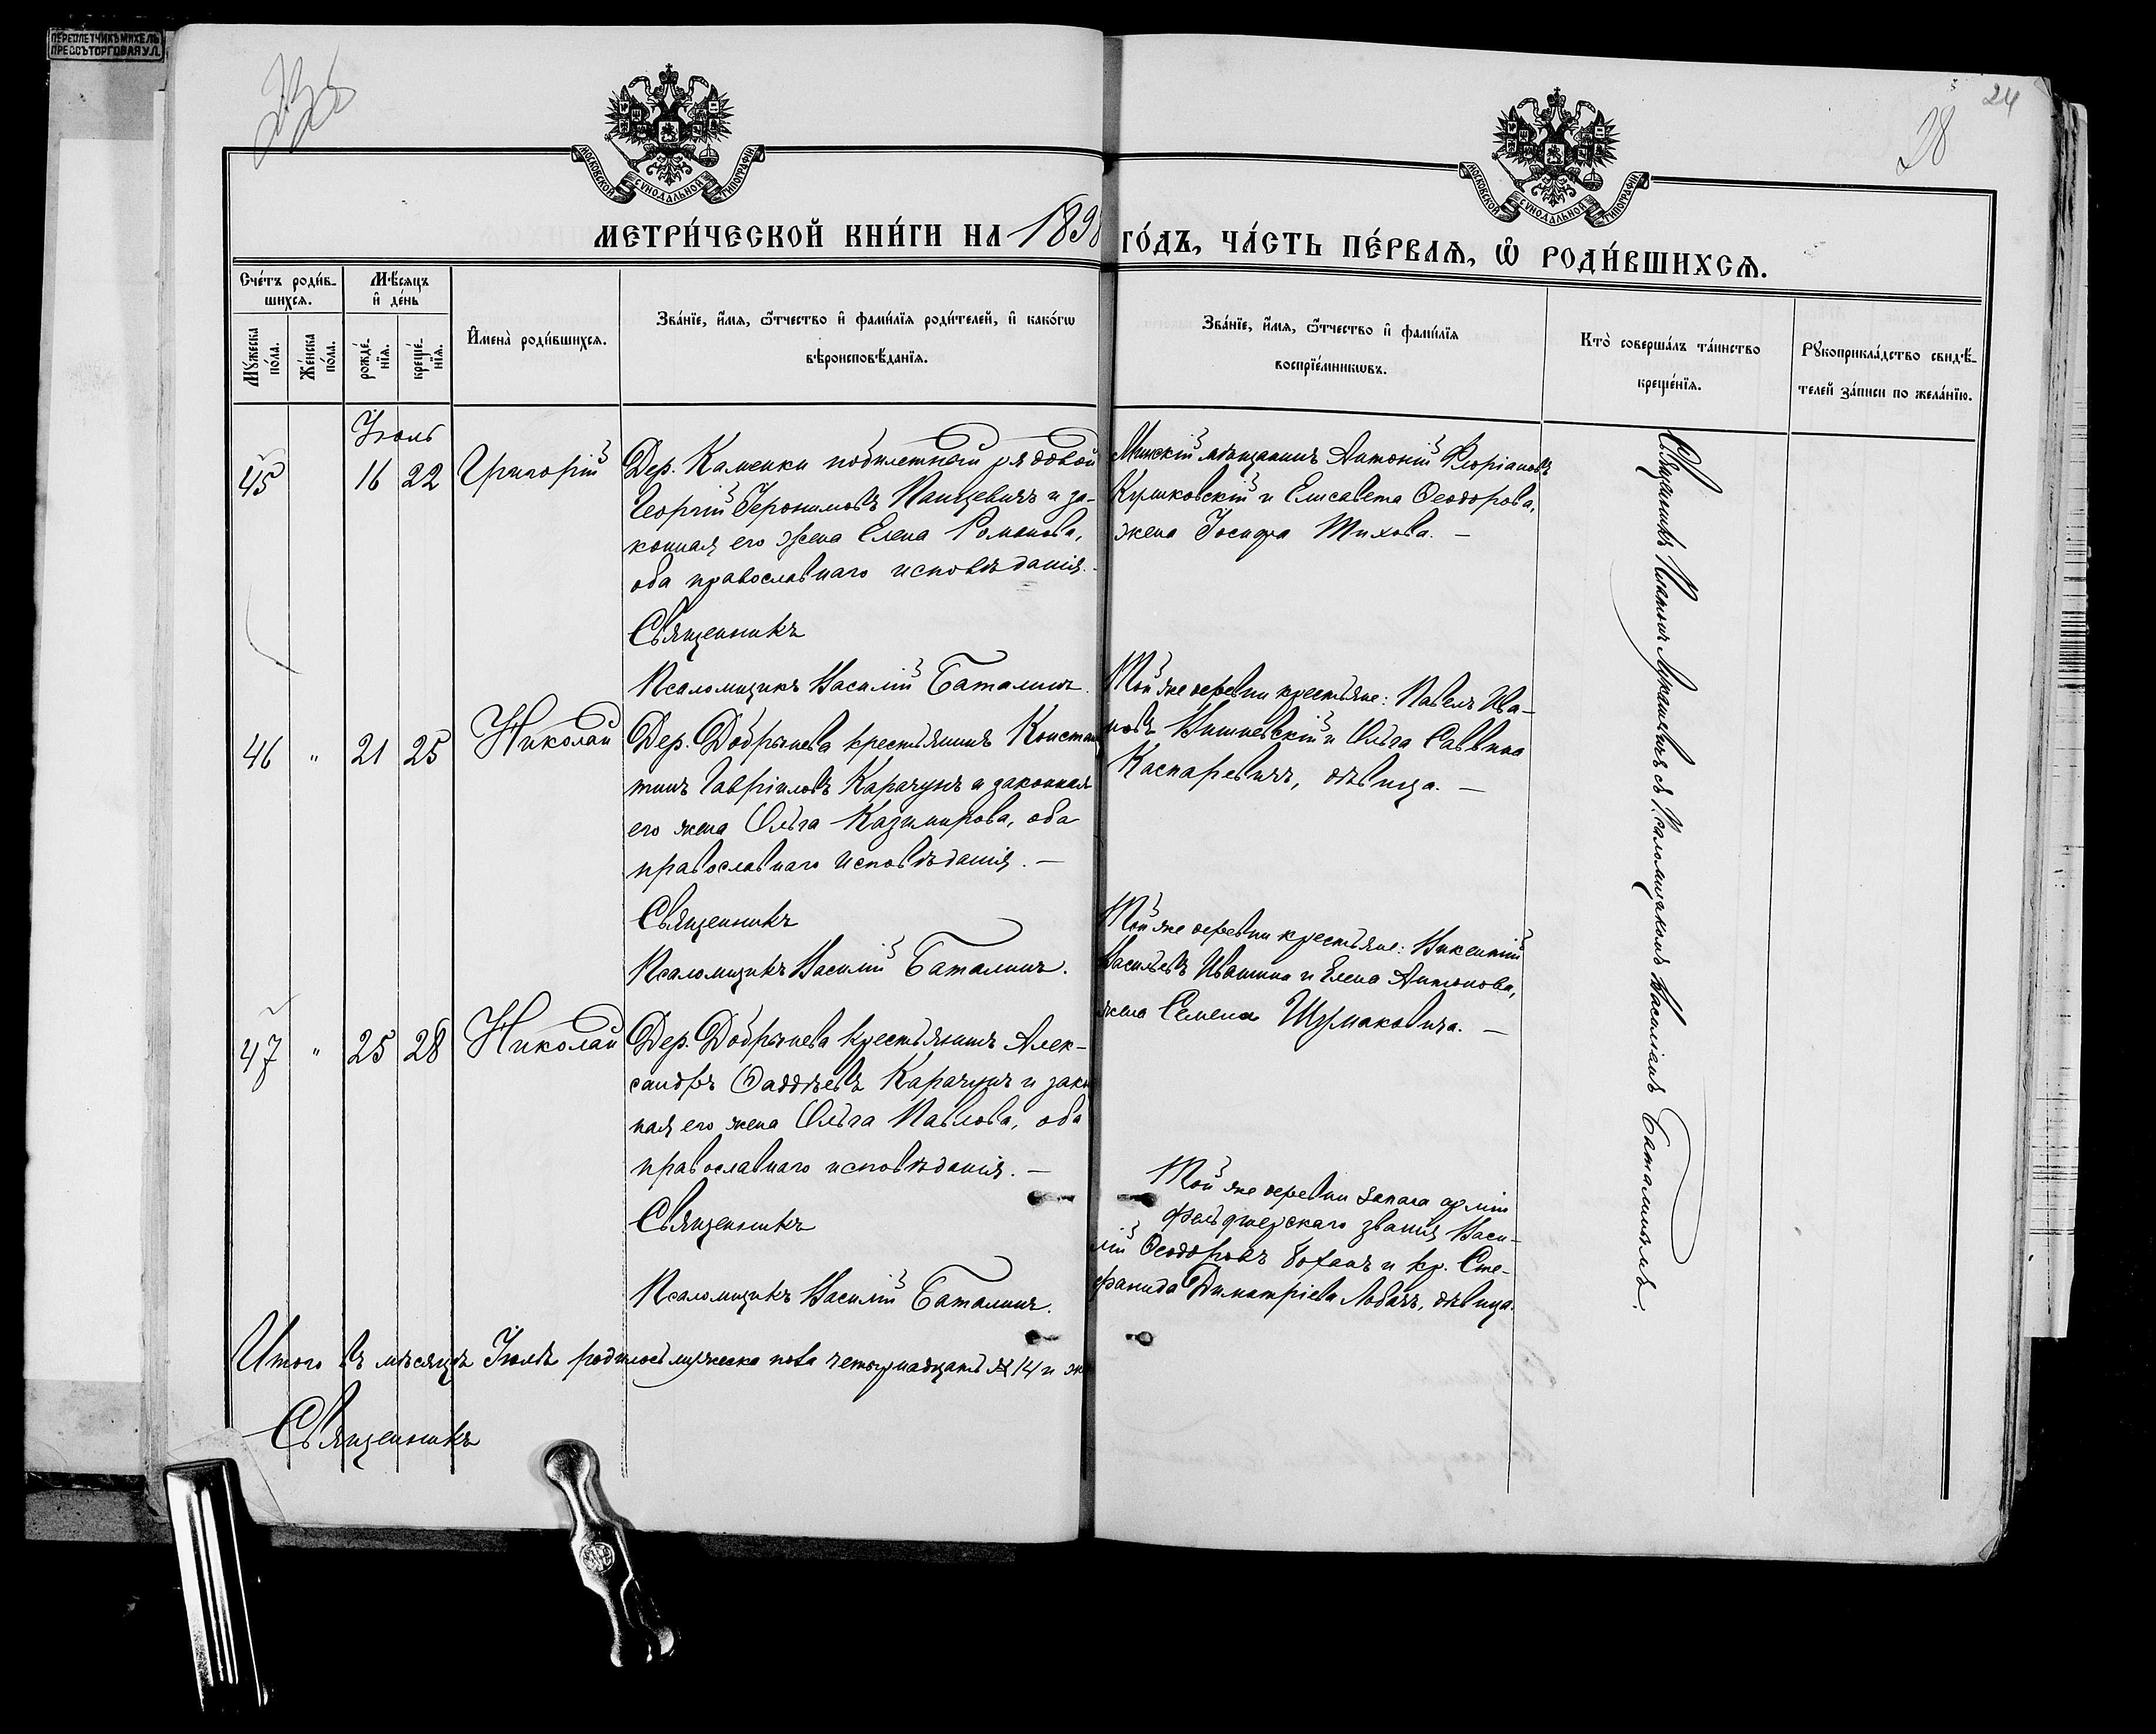 ПЕРЕПЛЕТЧИКЪ МИХЕЛЬ
ПРЕССЪ ТОРГОВАЯ УЛ.
24
28
МОСКОВСКОЙ СѴНОДАЛЬНОЙ ТИПОГРАФІИ
МОСКОВСКОЙ СѴНОДАЛЬНОЙ ТИПОГРАФІИ
МЕТРИ́ЧЕСКОЙ КНИ́ГИ НА 1898 ГО́ДЪ, ЧА́СТЬ ПЕ́РВАѦ, Ѡ҆ РОДИ́ВШИХСѦ.
Сче́тъ роди́в-
шихсѧ.
Мѣ́сѧцъ
и҆ де́нь
Мꙋ́жеска
по́ла.
Же́нска
по́ла.
рожде́-
нїѧ.
креще́-
нїѧ.
И҆мена̀ роди́вшихсѧ.
Зва́нїе, и҆́мѧ, ѻ҆́тчество и҆ фами́лїѧ роди́телей, и҆ како́гѡ
вѣроисповѣ́данїѧ.
Зва́нїе, и҆́мѧ, ѻ҆́тчество и҆ фами́лїѧ
воспрїе́мникѡвъ.
Кто̀ соверша́лъ та́инство
креще́нїѧ.
Рꙋкоприкла́дство свидѣ́-
телей за́писи по жела́нїю.
Іюль
45 16 22 Григорій
Дер. Каменки побилетный рядовой
Георгій Іеронимовъ Панцевичъ и за-
конная его жена Елена Романова,
оба православнаго исповѣданія.
Священникъ
Псаломщикъ Василій Баталинъ.
Минскій мѣщанинъ Антоній Флоріановъ
Куликовскій и Елисавета Ѳеодорова,
жена Іосифа Тихова. —
46 " 21 25 Николай
Дер. Добрынева крестьянинъ Констан
тинъ Гавріиловъ Карачунъ и законная
его жена Ольга Казимирова, оба
православнаго исповѣданія. —
Священникъ
Псаломщикъ Василій Баталинъ.
Той же деревни крестьяне: Павелъ Ива-
новъ Вишневскій и Ольга Саввина
Каспаревичъ, дѣвица. —
47 " 25 28 Николай
Дер. Добрынева крестьянинъ Алек-
сандръ Ѳаддѣевъ Карачунъ и закон
ная его жена Ольга Павлова, оба
православнаго исповѣданія. —
Священникъ
Псаломщикъ Василій Баталинъ.
Той же деревни крестьяне: Викентій
Васильевъ Ивашина и Елена Антонова,
жена Семена Шумаковича. —
Той же деревни запаса арміи
фельдшерскаго званія Васи-
лій Ѳеодоровъ Боханъ и кр. Сте-
фанида Димитріева Лобачъ, дѣвица.
Священникъ Платонъ Лукашевичъ съ Псаломщикомъ Василіемъ Баталинымъ.
Итого въ мѣсяцѣ Іюлѣ родилось мужеска пола четырнадцать 14 и ж
Священникъ